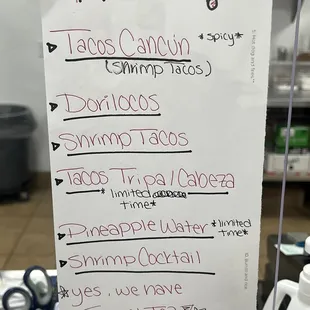 Tacos Cancun *spicy*
(Shrimp Tacos)
Dorilocos
Shrimp Tacos
Tacos Tripa/Cabeza
*limited
time*
Pineapple Water *limited
time*
Shrimp Cocktail
*yes, we have